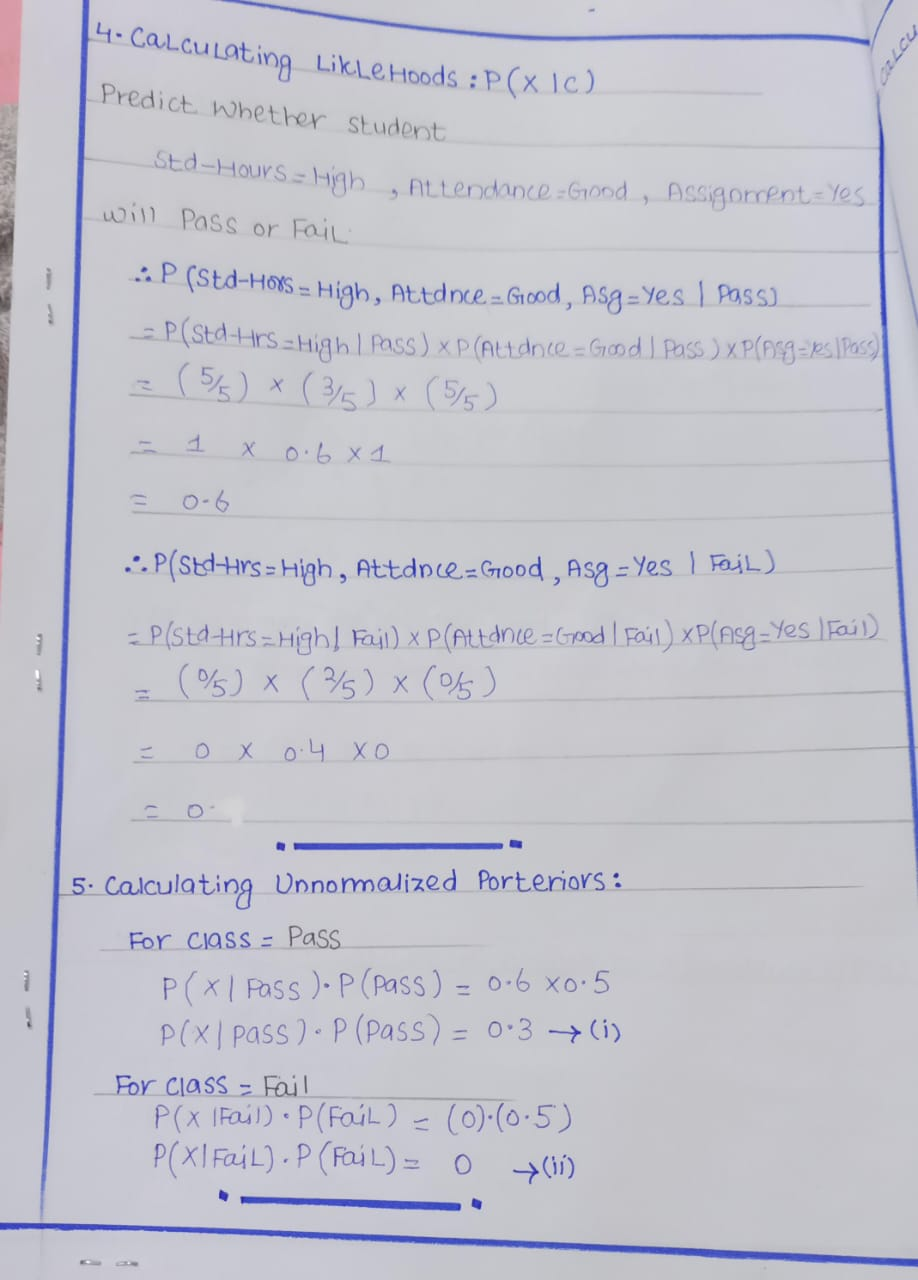 4. Calculating LikleHoods : P(X | C)
CALCU
Predict Whether student
Std-Hours = High , Attendance = Good , Assignment = Yes
will Pass or Fail.
∴ P (Std-Hors = High, Attdnce = Good, Asg = Yes | Pass)
= P(Std-Hrs = High | Pass) × P(Attdnce = Good | Pass) × P(Asg = yes | Pass)
= (5/5) × (3/5) × (5/5)
= 1 × 0.6 × 1
= 0.6
∴ P(Std-Hrs = High, Attdnce = Good, Asg = Yes | Fail)
= P(Std-Hrs = High | Fail) × P(Attdnce = Good | Fail) × P(Asg = Yes | Fail)
= (0/5) × (2/5) × (0/5)
= 0 × 0.4 × 0
= 0.
5. Calculating Unnormalized Porteriors :
For class = Pass
P(X | Pass) . P(Pass) = 0.6 × 0.5
P(X | Pass) . P(Pass) = 0.3 → (i)
For class = Fail
P(X | Fail) . P(Fail) = (0).(0.5)
P(X | Fail) . P(Fail) = 0 → (ii)